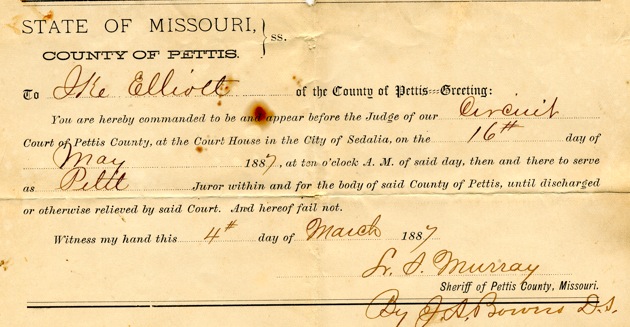 STATE OF MISSOURI,
COUNTY OF PETTIS. } ss.
To Ike Elliott of the County of Pettis---Greeting:
You are hereby commanded to be and appear before the Judge of our Circuit
Court of Pettis County, at the Court House in the City of Sedalia, on the 16th day of
May 1887, at ten o'clock A. M. of said day, then and there to serve
as Petit Juror within and for the body of said County of Pettis, until discharged
or otherwise relieved by said Court. And hereof fail not.
Witness my hand this 4th day of March 1887
L. S. Murray
Sheriff of Pettis County, Missouri.
By J. A. D.S.